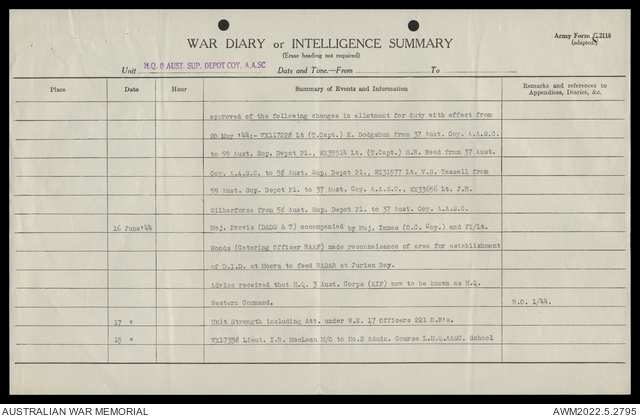 WAR DIARY or INTELLIGENCE SUMMARY
(Erase heading not required)
Army Form C.2118
(adapted)
Unit H.Q. 8 AUST. SUP. DEPOT COY. A.A.S.C Date and Time.—From To
Place Date Hour Summary of Events and Information Remarks and references to Appendices, Diaries, &c.
approved of the following changes in allotment for duty with effect from
20 May '44:- VX117228 Lt (T.Capt.) K. Dodgshun from 37 Aust. Coy. A.A.S.C.
to 59 Aust. Sup. Depot Pl., WX35914 Lt. (T.Capt.) S.R. Reed from 37 Aust.
Coy. A.A.S.C. to 58 Aust. Sup. Depot Pl., WX31977 Lt. V.B. Teasell from
59 Aust. Sup. Depot Pl. to 37 Aust. Coy. A.A.S.C., WX33696 Lt. J.H.
Wilberforce from 58 Aust. Sup. Depot Pl. to 37 Aust. Coy. A.A.S.C.
16 June'44 Maj. Previs (DADS & T) accompanied by Maj. Innes (O.C. Coy.) and Fl/Lt.
Woods (Catering Officer RAAF) made reconnaisance of area for establishment
of D.I.D. at Moora to feed RADAR at Jurien Bay.
Advice received that H.Q. 3 Aust. Corps (AIF) now to be known as H.Q.
Western Command. R.O. 1/44.
17 " Unit Strength including Att. under W.E. 17 Officers 221 O.R's.
19 " VX17356 Lieut. I.R. MacLean M/O to No.2 Admin. Course L.H.Q.AASC. School
AUSTRALIAN WAR MEMORIAL AWM2022.5.2795